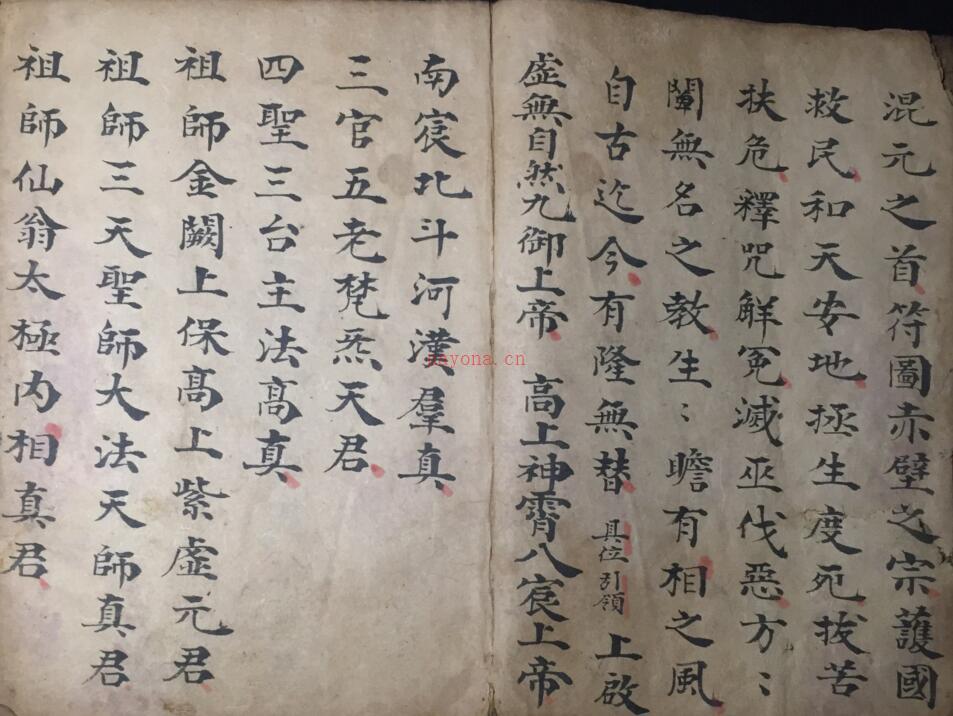 混元之首符圖赤壁之宗護國
救民和天安地拯生度死拔苦
扶危釋咒解冤滅巫伐惡方〻
闡無名之教生〻瞻有相之風
自古迄今有隆無替 具位引領 上啟
虛無自然九御上帝 高上神霄八宸上帝
南宸北斗河漢羣真
三官五老梵炁天君
四聖三台主法高真
祖師金闕上保高上紫虛元君
祖師三天聖師大法天師真君
祖師仙翁太極內相真君
nayona.cn